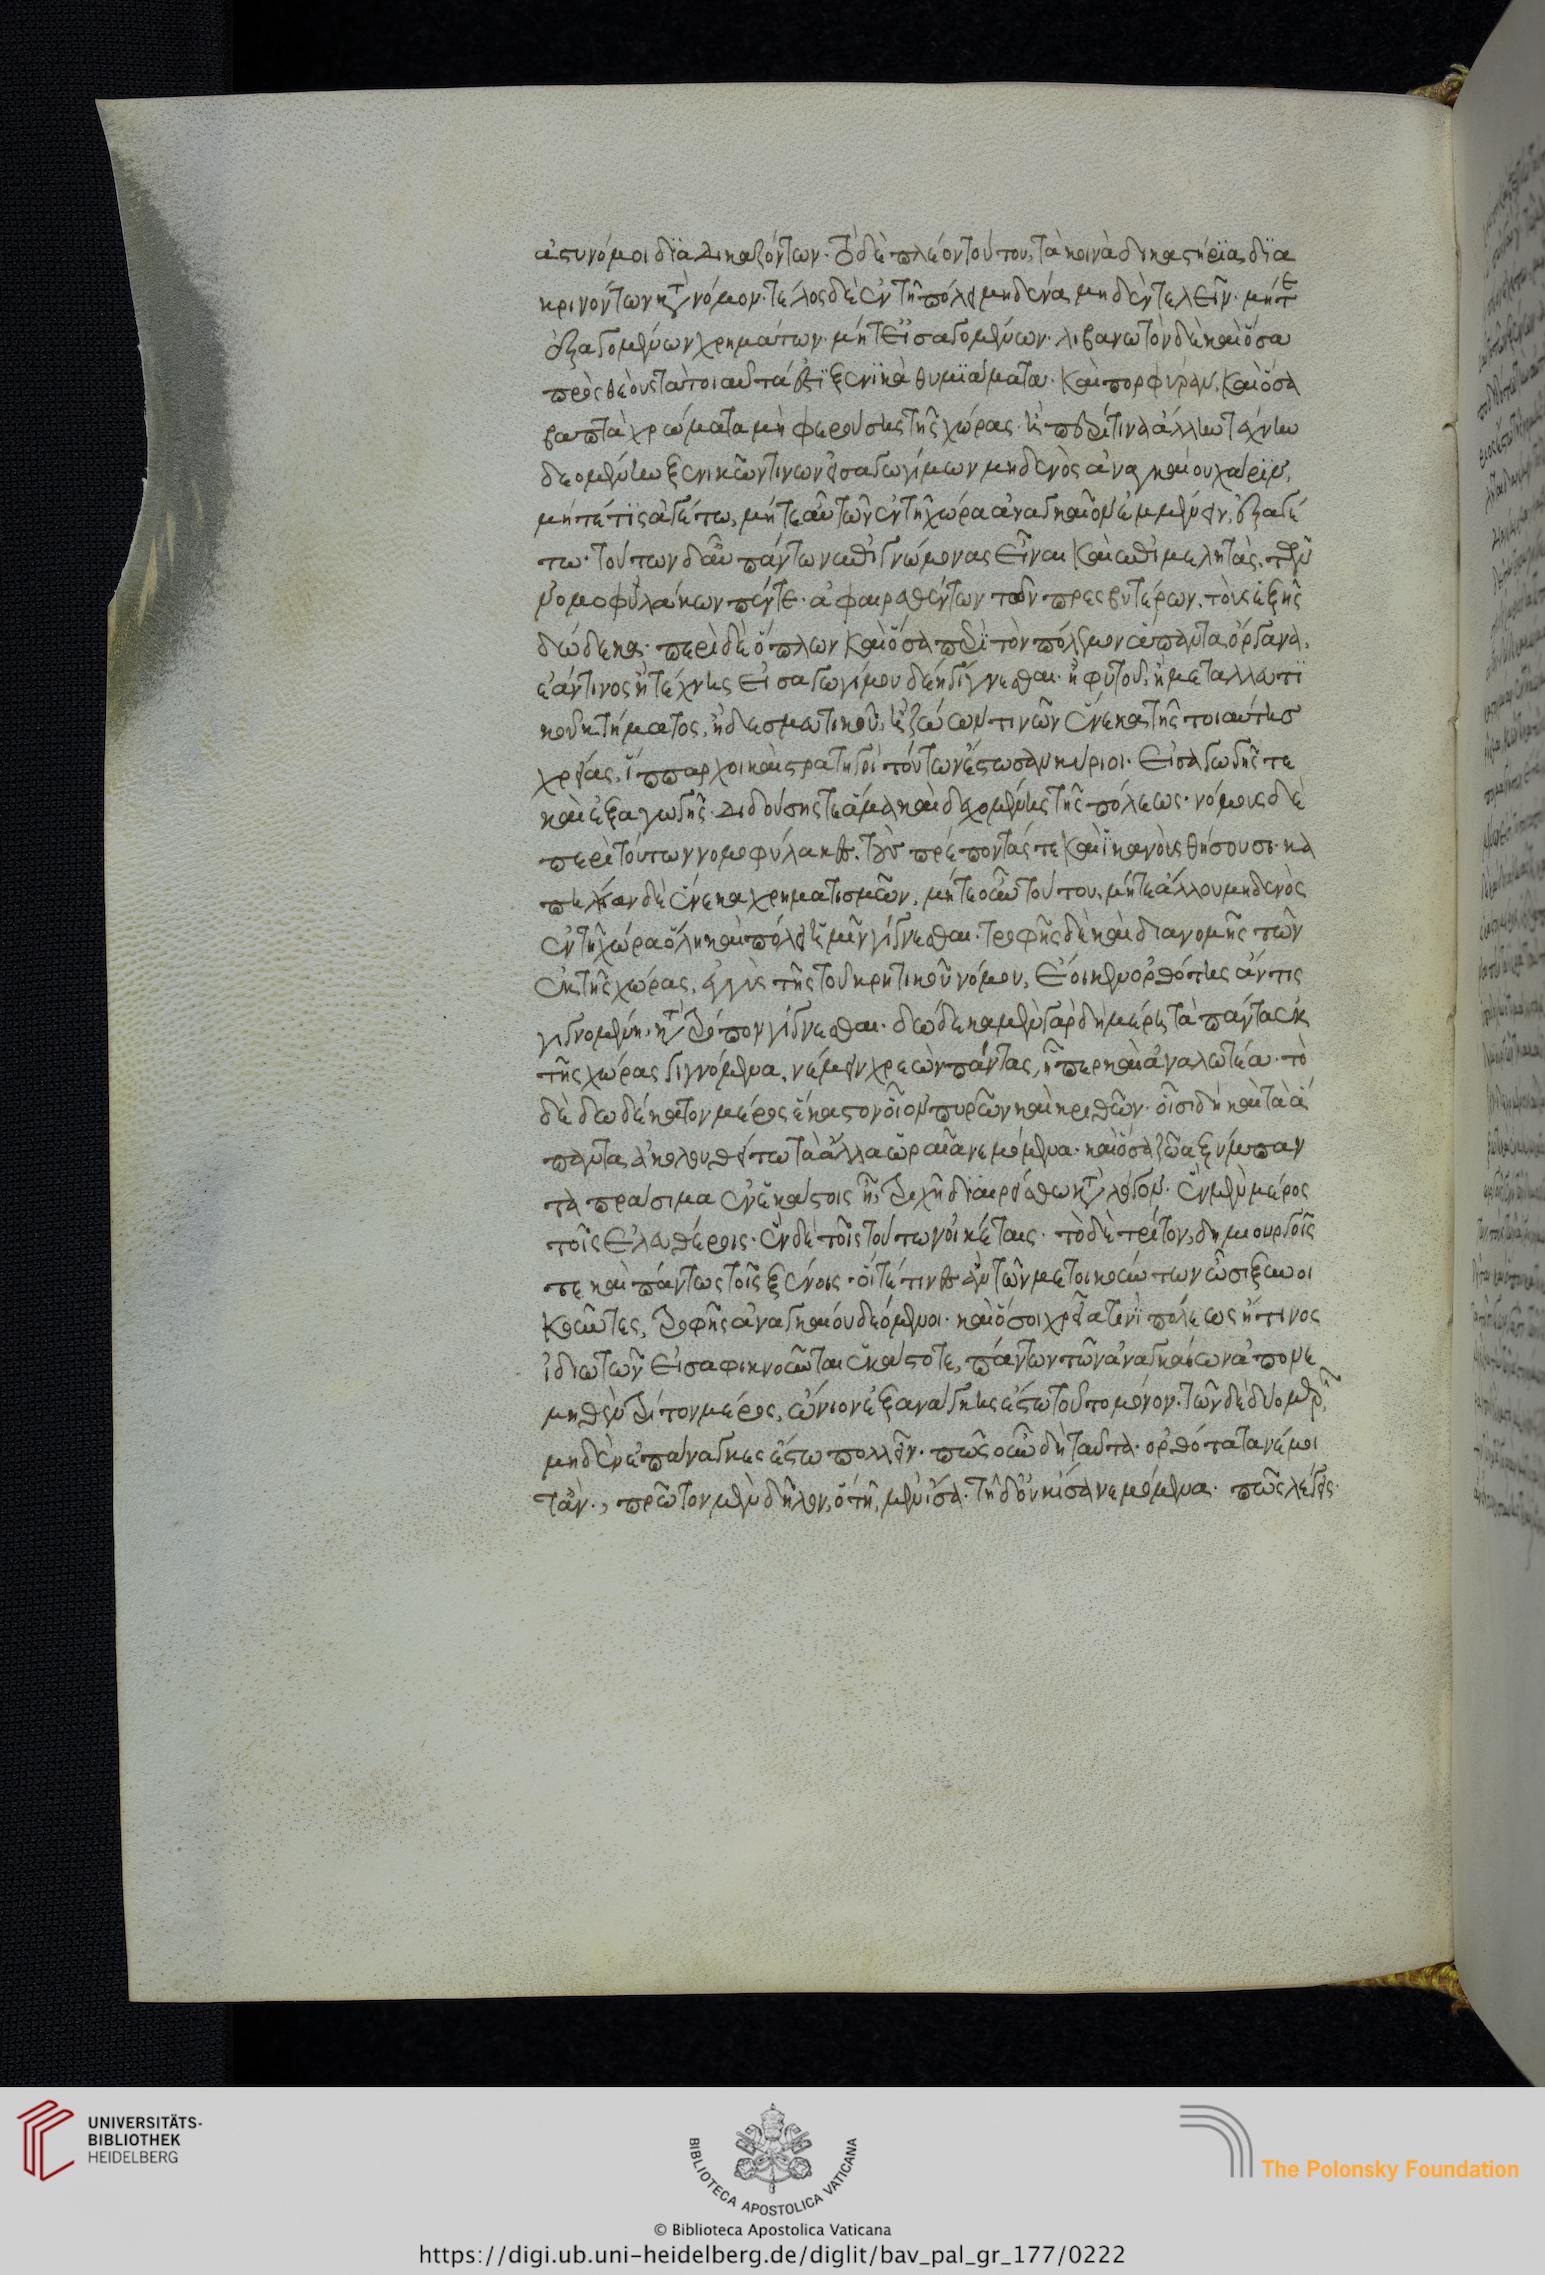 ἀστυνόμοι διαδικαζόντων· τὸ δὲ πλέον τούτου, τὰ κοινὰ δικαστήρϊα, δϊα
κρινόντων κατὰ νόμον· τέλος δὲ ἐν τῆ πόλει μηδένα μηδὲν τελεῖν· μήτε
ἐξαγομένων χρημάτων· μήτ' εἰσαγομένων· λιβανωτὸν δὲ καὶ ὅσα
πρὸς θεοὺς τὰ τοιαῦτά ἐστϊ ξενϊκὰ θυμϊάματα· καὶ πορφύραν, καὶ ὅσα
βαπτὰ χρώματα μὴ φερούσης τῆς χώρας· ἢ περί τινα ἄλλην τέχνην
δεομένην ξενικῶν τινων εἰσαγωγίμων μηδενὸς ἀναγκαίου χάρϊν,
μήτέ τϊς ἀγέτω, μήτε αὖ τῶν ἐν τῆ χώρα ἀναγκαίων ἐμμένειν, ἐξαγέ
τω· τούτων δ' αὖ πάντων ἐπιγνώμονας εἶναι καὶ ἐπιμελητὰς, τῶν
νομοφυλάκων πέντε· ἀφαιρεθέντων τῶν πρεσβυτέρων, τοὺς ἑξῆς
δώδεκα· περὶ δὲ ὅπλων καὶ ὅσα περὶ τὸν πόλεμον ἅπαντα ὄργανα,
ἐάν τινος ἢ τέχνης εἰσαγωγίμου δέη γίγνεσθαι· ἢ φυτοῦ, ἢ μεταλλευτϊ
κοῦ κτήματος, ἢ δεσμευτικοῦ, ἢ ζώων τινῶν ἕνεκα τῆς τοιαύτης
χρείας, ἵππαρχοι καὶ στρατηγοὶ τούτων ἔστωσαν κύριοι· εἰσαγωγῆς τε
καὶ ἐξαγωγῆς· διδούσης τε ἅμα καὶ δεχομένης τῆς πόλεως· νόμους δὲ
περὶ τούτων νομοφύλακες. τοὺς πρέποντάς τε καὶ ἱκανοὺς θήσουσι· κα
πηλείαν δὲ ἕνεκα χρηματισμῶν, μήτε οὖν τούτου, μήτε ἄλλου μηδενὸς
ἐν τῆ χώρα ὅλη καὶ πόλει ἡμῖν γίγνεσθαι· τροφῆς δὲ καὶ διανομῆς τῶν
ἐκ τῆς χώρας, ἐγγὺς τῆς τοῦ κρητικοῦ νόμου, ἔοικεν ὀρθότης ἄν τις
γιγνομένη, κατὰ τρόπον γίγνεσθαι· δώδεκα μὲν γὰρ δὴ μέρη τὰ πάντα ἐκ
τῆς χώρας γιγνόμενα, νέμειν χρεὼν πάντας, ἧπερ καὶ ἀναλωτέα· τὸ
δὲ δωδέκατον μέρος ἕκαστον οἷον πυρῶν καὶ κριθῶν· οἷσι δὴ καὶ τὰ ἅ
παντα ἀκολουθείτω τὰ ἄλλα ὡραῖα νεμόμενα· καὶ ὅσα ζῶα ξύμπαν
τα πράσιμα ἐν ἑκάστοις ἦ, τριχῆ δϊαιρείσθω κατὰ λόγον· ἓν μὲν μέρος
τοῖς ἐλευθέροις· ἓν δὲ τοῖς τούτων οἰκέταις· τὸ δὲ τρίτον, δημιουργοῖς
τε καὶ πάντως τοῖς ξένοις· οἵ τέ τινες ἂν τῶν μετοικούντων ὦσι ξυνοι
κοῦντες, τροφῆς ἀναγκαίου δεόμενοι· καὶ ὅσοι χρεία τινὶ πόλεως ἤ τινος
ἰδιωτῶν εἰσαφικνοῦνται ἑκάστοτε, πάντων τῶν ἀναγκαίων ἀπονε
μηθὲν τρίτον μέρος, ὤνιον ἐξ ἀνάγκης ἔστω τοῦτο μόνον· τῶν δὲ δύο μερῶν,
μηδὲν ἐπάναγκες ἔστω πωλεῖν· πῶς οὖν δὴ ταῦτα ὀρθότατα νέμοι
τ' ἄν·, πρῶτον μὲν δῆλον, ὅτι τῆ, μὲν ἴσα· τῆ δ' οὐκ ἴσα νεμόμενα· πῶς λέγεις·
UNIVERSITÄTS-
BIBLIOTHEK
HEIDELBERG
BIBLIOTECA APOSTOLICA VATICANA
The Polonsky Foundation
© Biblioteca Apostolica Vaticana
https://digi.ub.uni-heidelberg.de/diglit/bav_pal_gr_177/0222